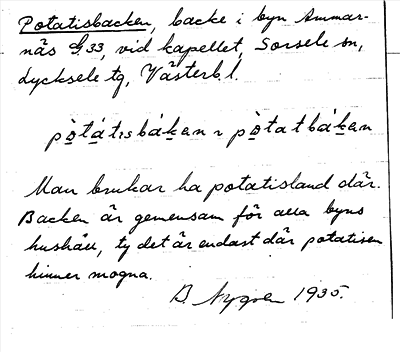 Potatisbacken, backe i byn Ammar-
näs G.33, vid kapellet, Sorsele sn,
Lycksele tg, Västerb. l.
pò̱tá̱tısbák̲en ~ pò̱tatbák̲en
Man brukar ha potatisland där.
Backen är gemensam för alla byns
hushåll, ty det är endast där potatisen
hinner mogna.
B. Nygren 1935.